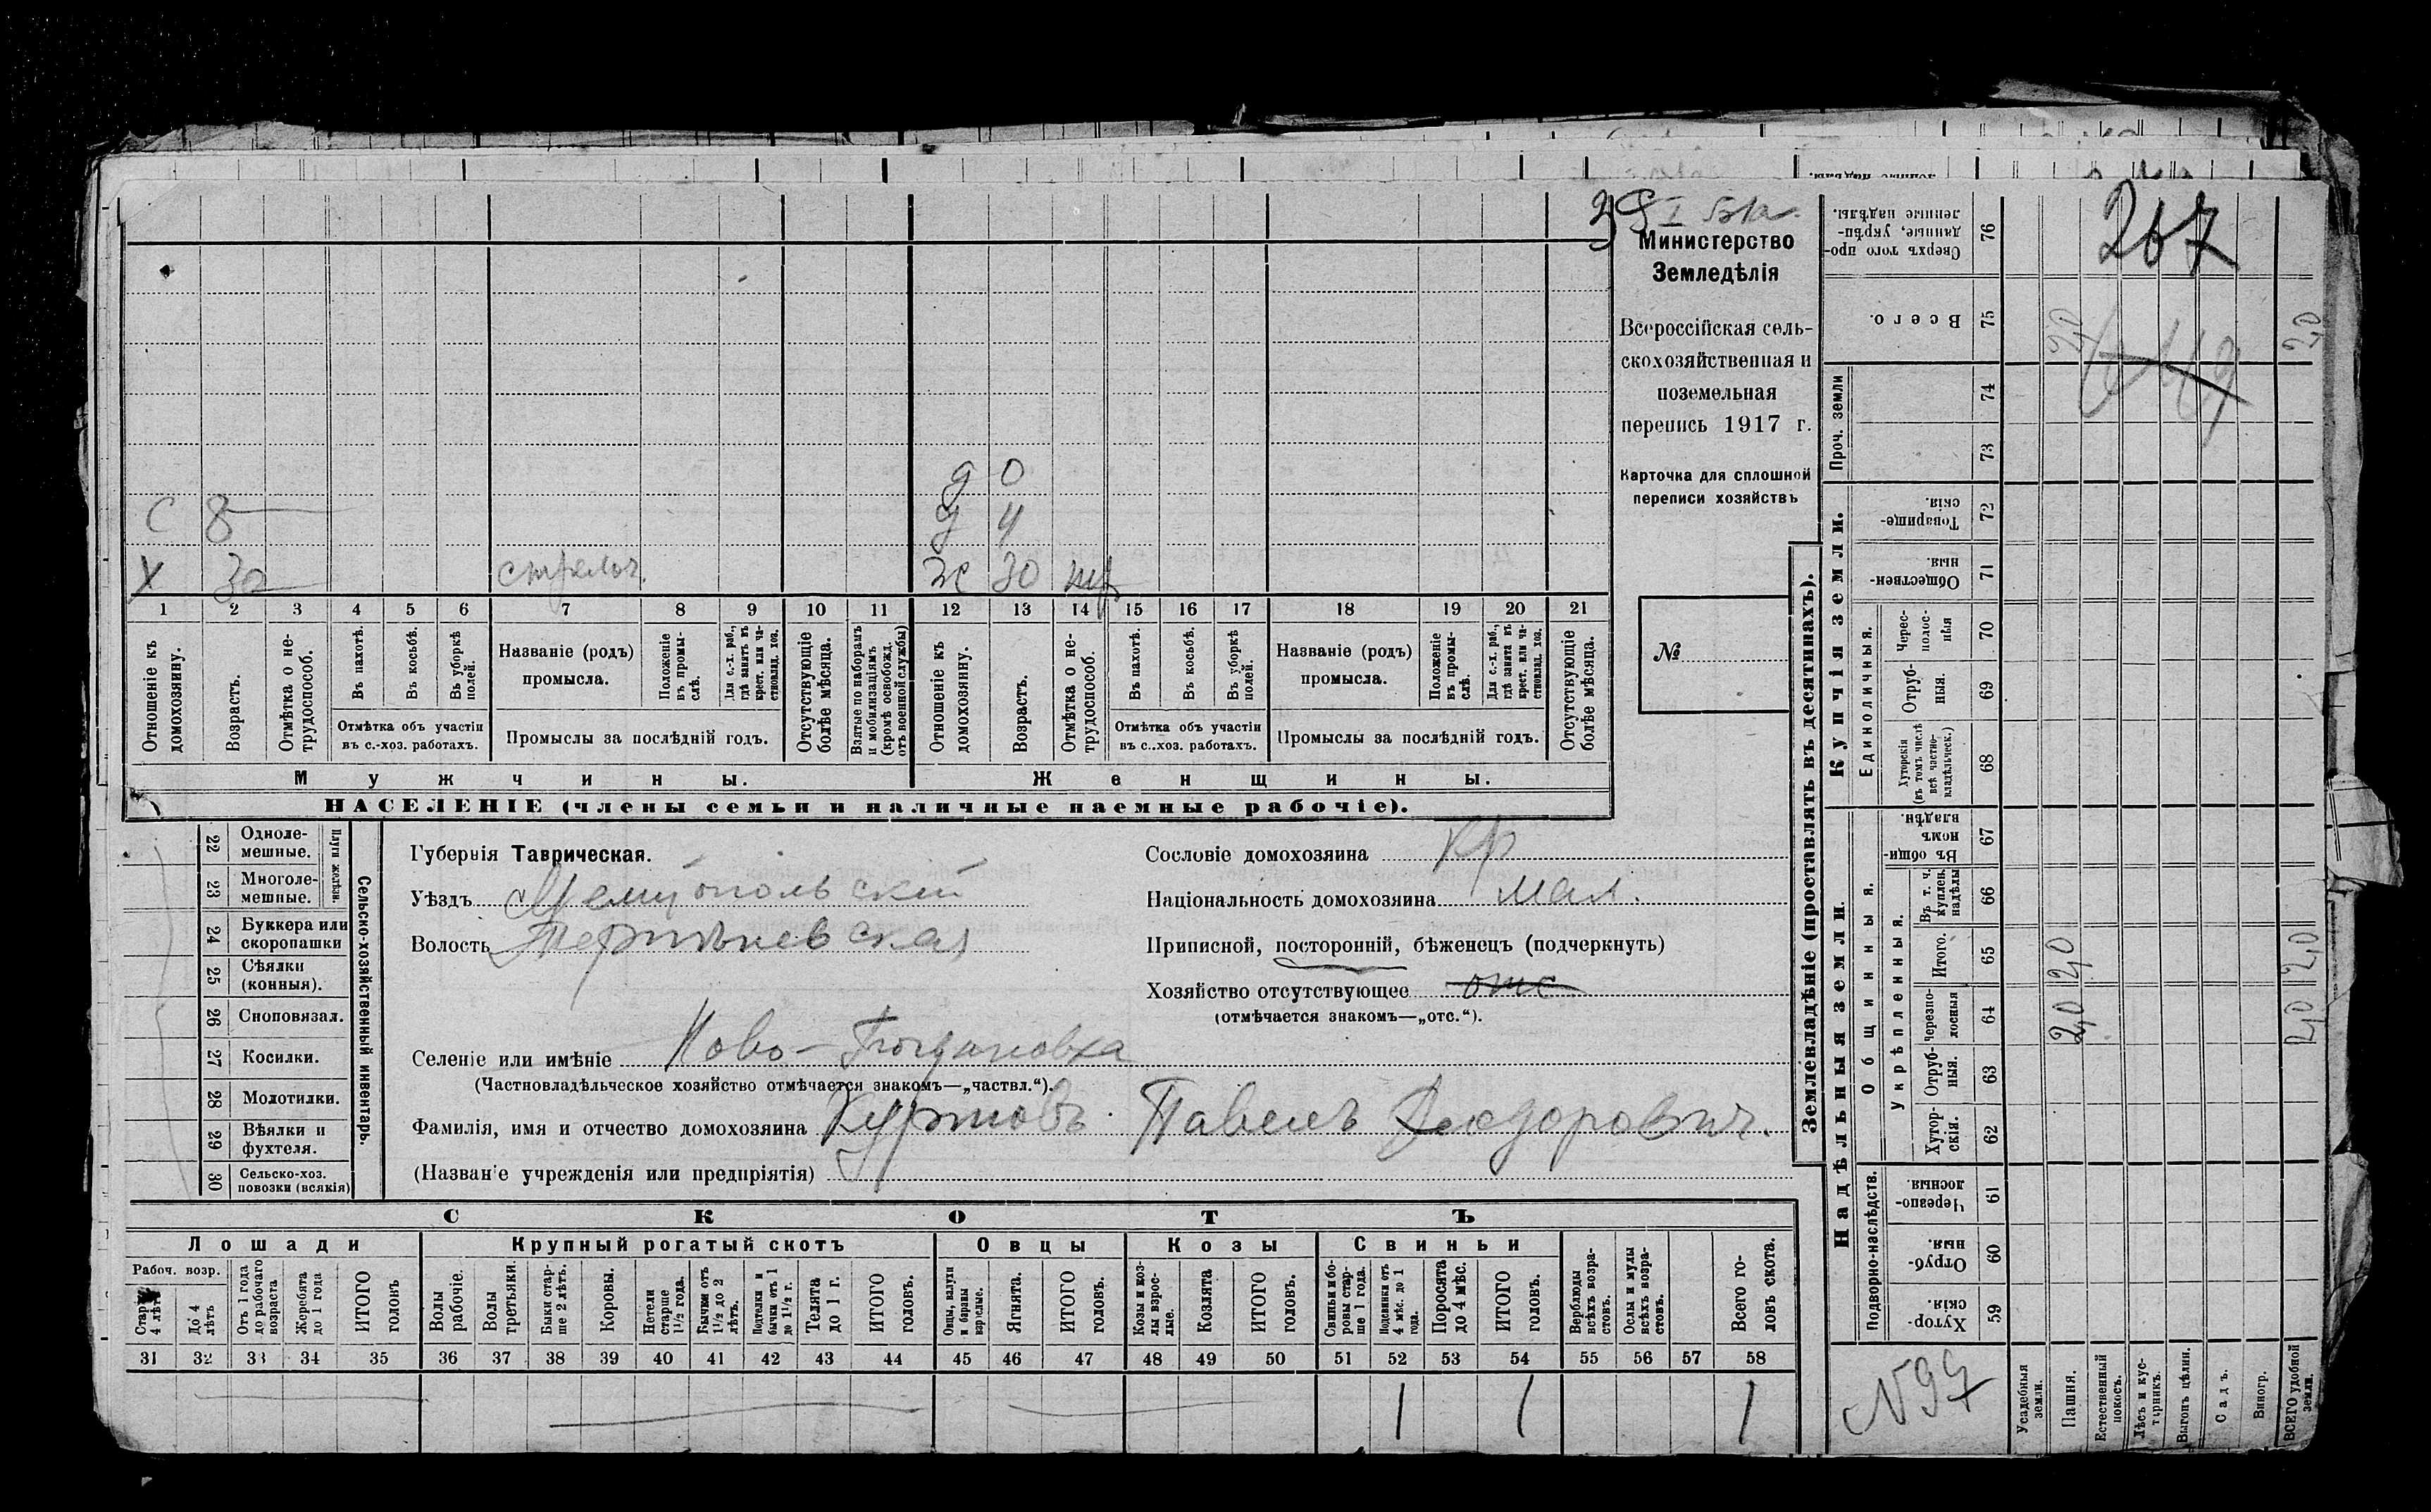 267
Министерство
Земледѣлія
Всероссійская сель-
скохозяйственная и
поземельная
перепись 1917 г.
Карточка для сплошной
переписи хозяйствъ
№
д 0
С 8 д 4
Х 30 стрелоч. ж 30
1 2 3 4 5 6 7 8 9 10 11 12 13 14 15 16 17 18 19 20 21
Отношеніе къ домохозяину.
Возрастъ.
Отмѣтка о не-трудоспособ.
Въ пахотѣ.
Въ косьбѣ.
Въ уборкѣ полей.
Отмѣтка объ участіи
въ с.-хоз. работахъ.
Названіе (родъ)
промысла.
Положеніе въ промы-слѣ.
Для с.-х. раб., гдѣ занятъ въ крест. или ча-стновлад. хоз.
Промыслы за послѣдній годъ.
Отсутствующіе болѣе мѣсяца.
Взятые по наборамъ и мобилизаціямъ (кромѣ освобожд. отъ военной службы)
Отношеніе къ домохозяину.
Возрастъ.
Отмѣтка о не-трудоспособ.
Въ пахотѣ.
Въ косьбѣ.
Въ уборкѣ полей.
Отмѣтка объ участіи
въ с..хоз. работахъ.
Названіе (родъ)
промысла.
Положеніе въ промы-слѣ.
Для с.-х. раб., гдѣ занята въ крест. или ча-стновлад. хоз.
Промыслы за послѣдній годъ.
Отсутствующіе болѣе мѣсяца.
Мужчины.
Женщины.
НАСЕЛЕНІЕ (члены семьи и наличные наемные рабочіе).
Сельско-хозяйственный инвентарь.
Плуги желѣзн.
22 Одноле-мешные.
23 Многоле-мешные.
24 Буккера или скоропашки
25 Сѣялки (конныя).
26 Сноповязал.
27 Косилки.
28 Молотилки.
29 Вѣялки и фухтеля.
30 Сельско-хоз. повозки (всякія)
Губернія Таврическая.
Уѣздъ Мелитопольскій
Волость Терпѣньевская
Сословіе домохозяина кр
Національность домохозяина мал.
Приписной, посторонній, бѣженецъ (подчеркнуть)
Хозяйство отсутствующее отс
(отмѣчается знакомъ—„отс.“).
Селеніе или имѣніе Ново-Богдановка
(Частновладѣльческое хозяйство отмѣчается знакомъ—„частвл.“).
Фамилія, имя и отчество домохозяина Куртовъ Павелъ Феодорович.
(Названіе учрежденія или предпріятія)
СКОТЪ
Лошади
Крупный рогатый скотъ
Овцы
Козы
Свиньи
Рабоч. возр.
Старше 4 лѣтъ
До 4 лѣтъ
Отъ 1 года до рабочаго возраста
Жеребята до 1 года
ИТОГО головъ
Волы рабочіе.
Волы третьяки.
Быки стар-ше 2 лѣтъ.
Коровы.
Нетели старше 1 1/2 года.
Бычки отъ 1 1/2 до 2 лѣтъ.
Подтелки и бычки отъ 1 до 1 1/2 г.
Телята до 1 г.
ИТОГО головъ.
Овцы, валухи и бараны взрослые.
Ягнята.
ИТОГО головъ.
Козы и коз-лы взрос-лые.
Козлята
ИТОГО головъ.
Свиньи и бо-ровы стар-ше 1 года.
Подсвинки отъ 4 мѣс. до 1 года.
Поросята до 4 мѣс.
ИТОГО головъ.
Верблюды всѣхъ возра-стовъ.
Ослы и мулы всѣхъ возра-стовъ.
Всего го-ловъ скота.
31 32 33 34 35 36 37 38 39 40 41 42 43 44 45 46 47 48 49 50 51 52 53 54 55 56 57 58
1 1 1
Землевладѣніе (проставлять въ десятинахъ).
Купчія земли.
Надѣльныя земли.
Проч. земли
Единоличныя.
Общинныя.
Укрѣпленныя.
Подворно-наслѣдств.
Сверхъ того про-данные, укрѣп-ленные надѣлы. 76
Всего. 75 2,0 2,0
74
73
Товарище-скія. 72
Обществен-ныя. 71
Черес-полос-ныя 70
Отруб-ныя. 69
Хуторскія (въ томъ числѣ всѣ частно-владѣльческ.) 68
Въ общи-номъ владѣн. 67
Въ т. ч. куплен. надѣлы 66
Итого. 65 2,0 2,0
Черезпо-лосныя 64 2,0 2,0
Отруб-ныя. 63
Хутор-скія. 62
Черезпо-лосныя. 61
Отруб-ныя. 60
Хутор-скія. 59
N 97
Усадебныя земли.
Пашня.
Естественный покосъ.
Лѣсъ и кус-тарникъ.
Выгонъ цѣлин.
Садъ.
Виногр.
ВСЕГО удобной земли.